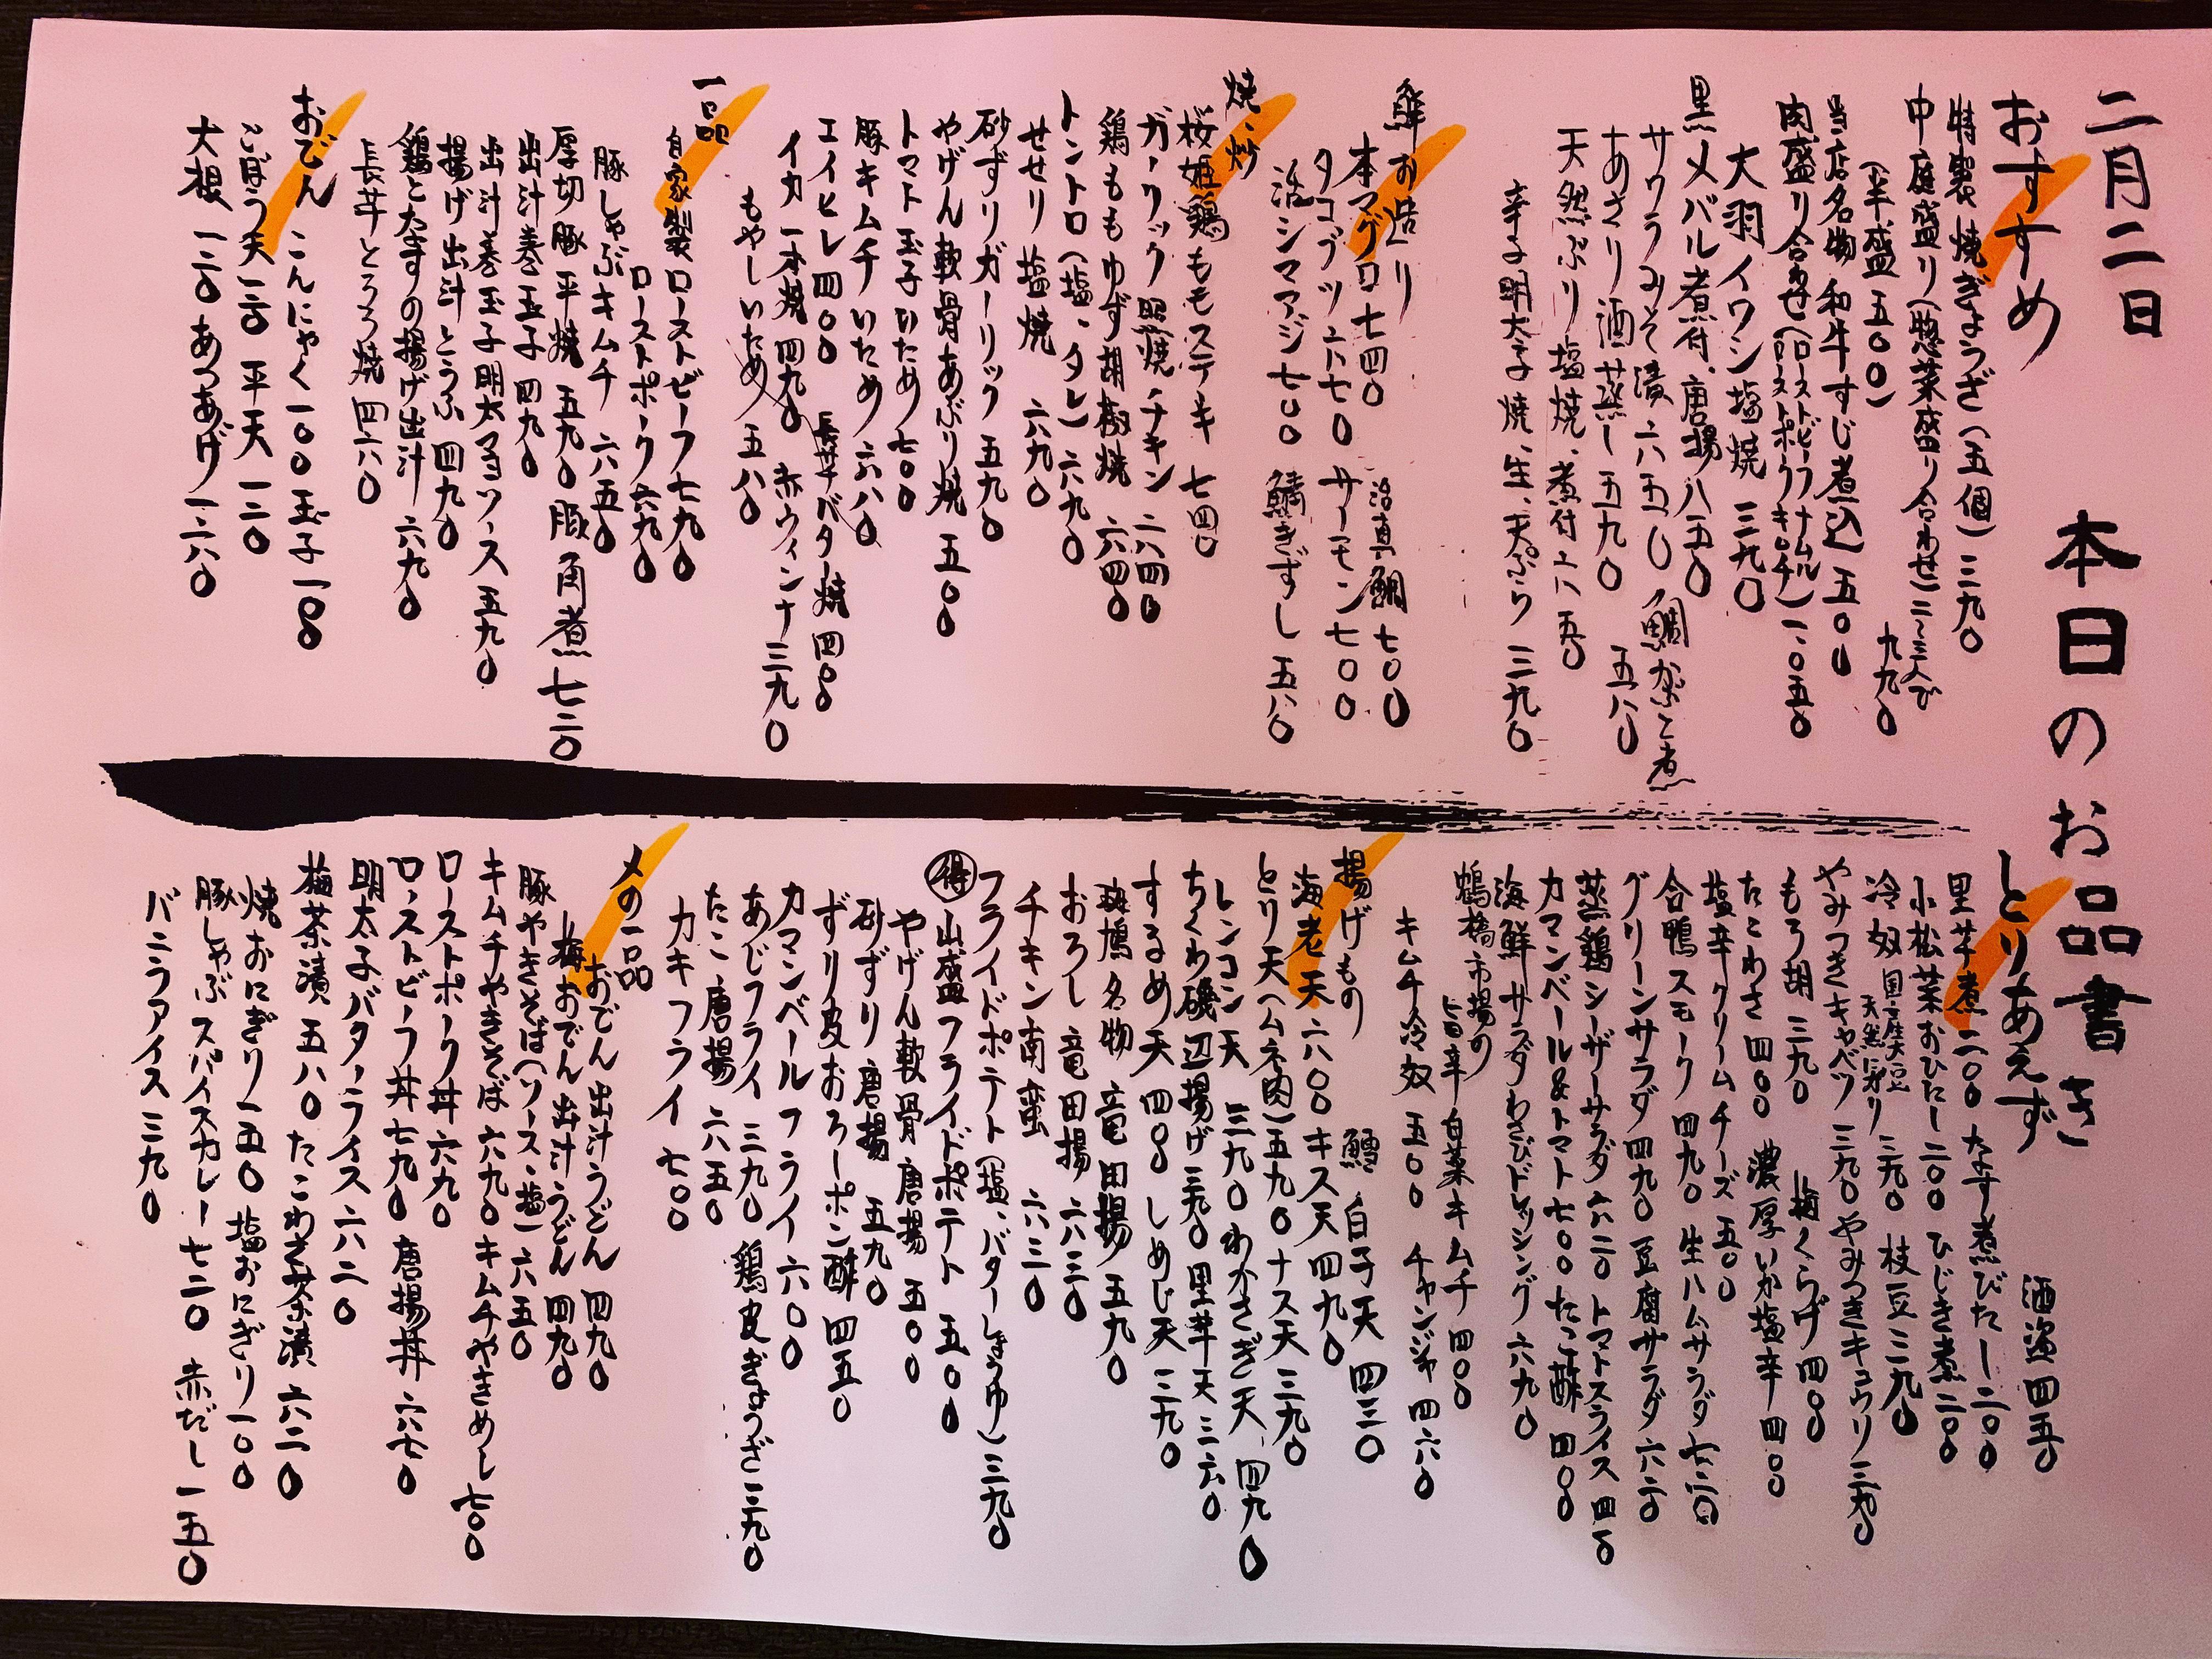 二月二日
本日のお品書き
おすすめ
特製焼ぎょうざ(五個)三九〇
中庭盛り(惣菜盛り合わせ)二~三人び 九九〇
(半盛五〇〇)
当店名物和牛すじ煮込 五〇〇
肉盛り合わせ(ローストビーフナムル ローストポークキムチ)一、〇五〇
大羽イワシ塩焼 三九〇
黒メバル煮付、唐揚 八五〇
サワラみそ漬 六五〇 鯛かぶと煮 五八〇
あさり酒蒸し 五九〇
天然ぶり塩焼、煮付 六五〇
辛子明太子焼、生、天ぷら 三九〇
鮮 お造り
本マグロ 七四〇 活真鯛 七〇〇
タコブツ 六七〇 サーモン 七〇〇
活シマアジ 七〇〇 鯖きずし 五八〇
焼・炒
桜姫鶏ももステーキ 七四〇
ガーリック照焼チキン 六四〇
鶏ももゆず胡椒焼 六四〇
トントロ(塩、タレ)六九〇
せせり塩焼 六九〇
砂ずりガーリック 五九〇
やげん軟骨あぶり焼 五〇〇
トマト玉子いため 七〇〇
豚キムチいため 六八〇
エイヒレ 四〇〇 長芋バター焼 四〇〇
イカ一本焼 四九〇 赤ウィンナ 三九〇
もやしいため 五八〇
一品
自家製ローストビーフ 七九〇
ローストポーク 六九〇
豚しゃぶキムチ 六五〇
厚切豚平焼 五九〇 豚角煮 七二〇
出汁巻玉子 四九〇
出汁巻玉子明太マヨソース 五九〇
揚げ出汁とうふ 四九〇
鶏となすの揚げ出汁 六九〇
長芋とろろ焼 四六〇
おでん
こんにゃく 一〇〇 玉子 一〇〇
ごぼう天 一三〇 平天 一三〇
大根 一三〇 あつあげ 一六〇
とりあえず
酒盗 四五〇
里芋煮 二〇〇 なす煮びたし 二〇〇
小松菜おひたし 二〇〇 ひじき煮 二〇〇
冷奴 国産大豆 天然にがり 三九〇 枝豆 三九〇
やみつきキャベツ 三九〇 やみつきキュウリ 三九〇
もろ胡 三九〇 梅くらげ 四〇〇
たこわさ 四〇〇 濃厚いか塩辛 四〇〇
塩辛クリームチーズ 五〇〇
合鴨スモーク 四九〇 生ハムサラダ 七二〇
グリーンサラダ 四九〇 豆腐サラダ 六二〇
蒸鶏シーザーサラダ 六二〇 トマトスライス 四〇〇
カマンベール&トマト 七〇〇 たこ酢 四〇〇
海鮮サラダわさびドレッシング 六九〇
鶴橋市場の旨辛白菜キムチ 四〇〇
キムチ冷奴 五〇〇 チャンジャ 四六〇
揚げもの
鱈白子天 四三〇
海老天 六八〇 キス天 四九〇
とり天(ムネ肉)五九〇 ナス天 三九〇
レンコン天 三九〇 わかさぎ天 四九〇
ちくわ磯辺揚げ 三九〇 里芋天 三六〇
するめ天 四〇〇 しめじ天 三九〇
斑鳩名物竜田揚 五九〇
おろし竜田揚 六三〇
チキン南蛮 六三〇
フライドポテト(塩、バターしょうゆ)三九〇
得 山盛フライドポテト 五〇〇
やげん軟骨唐揚 五〇〇
砂ずり唐揚 五九〇
ずり皮おろしポン酢 四五〇
カマンベールフライ 六〇〇
あじフライ 三九〇 鶏皮ぎょうざ 三九〇
たこ唐揚 六五〇
カキフライ 七〇〇
〆の一品
おでん出汁うどん 四九〇
梅おでん出汁うどん 四九〇
豚やきそば(ソース・塩)六五〇
キムチやきそば 六九〇 キムチやきめし 七〇〇
ローストポーク丼 六九〇
ローストビーフ丼 七九〇 唐揚丼 六七〇
明太子バターライス 六二〇
梅茶漬 五八〇 たこわさ茶漬 六二〇
焼おにぎり 一五〇 塩おにぎり 一〇〇
豚しゃぶスパイスカレー 七二〇 赤だし 一五〇
バニラアイス 三九〇